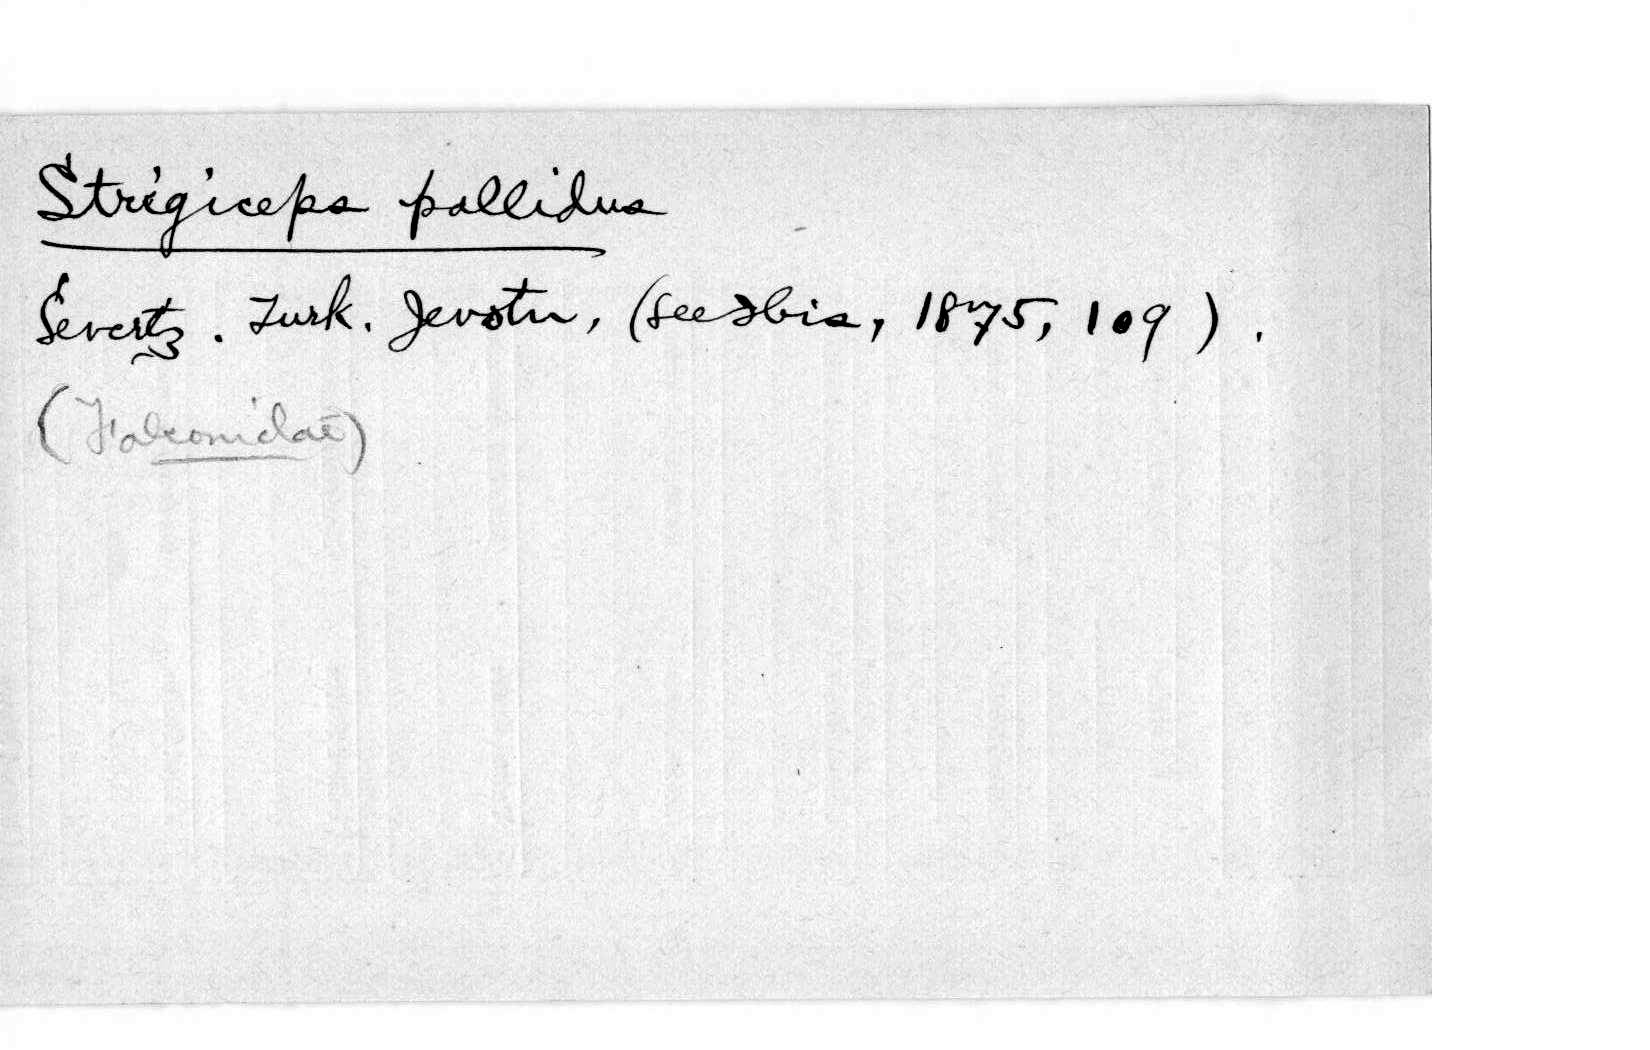 Strigiceps pallidus
Severtz. Turk. Jevotn, (see Ibis, 1875, 109).
(Falconidae)